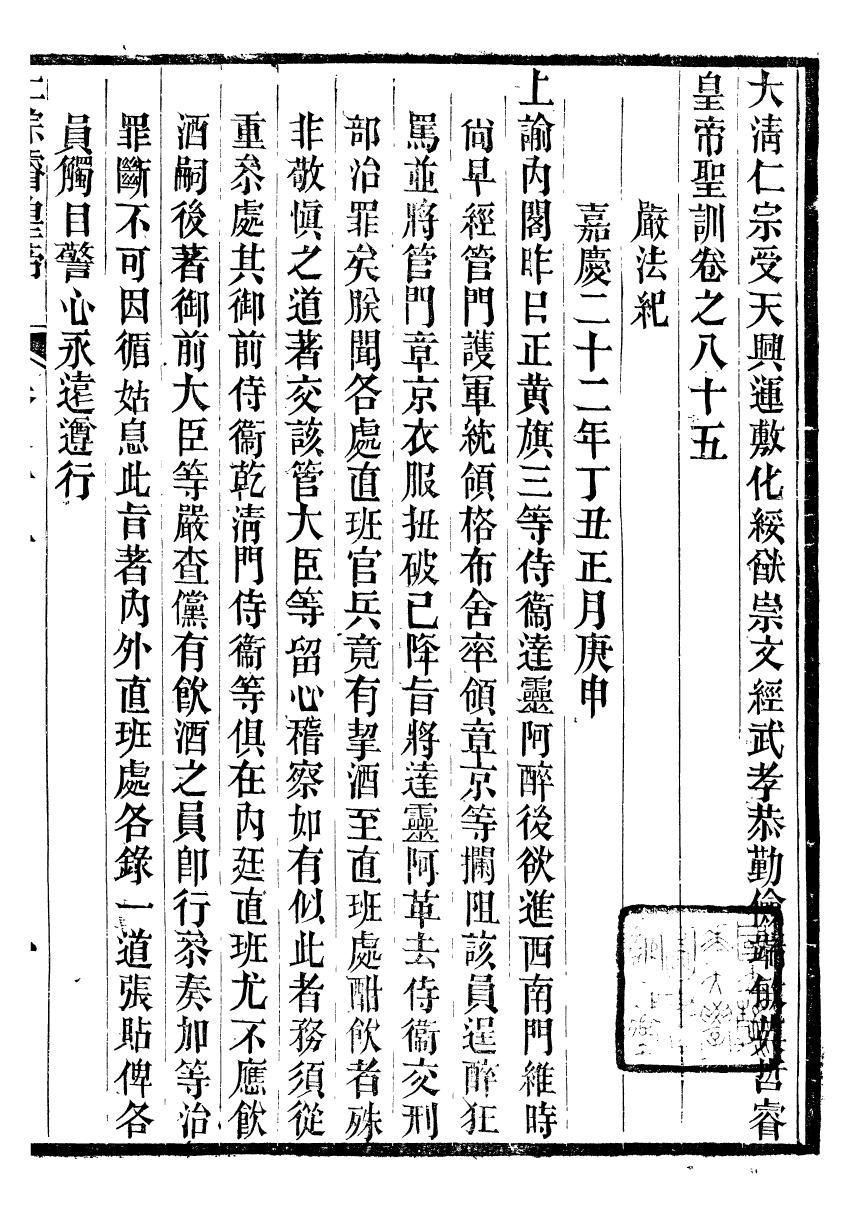 大清仁宗受天興運敷化綏猷崇文經武孝恭勤儉端敏英哲睿
皇帝聖訓卷之八十五
嚴法紀
嘉慶二十二年丁丑正月庚申
上諭內閣昨日正黃旗三等侍衞達靈阿醉後欲進西南門維時
尚早經管門護軍統領格布舍率領章京等攔阻該員逞醉狂
罵並將管門章京衣服扯破已降旨將達靈阿革去侍衞交刑
部治罪矣朕聞各處直班官兵竟有挈酒至直班處酣飲者殊
非敬愼之道著交該管大臣等留心稽察如有似此者務須從
重叅處其御前侍衞乾淸門侍衞等俱在內廷直班尤不應飲
酒嗣後著御前大臣等嚴查儻有飲酒之員卽行叅奏加等治
罪斷不可因循姑息此旨著內外直班處各錄一道張貼俾各
員觸目警心永遠遵行
仁宗睿皇帝